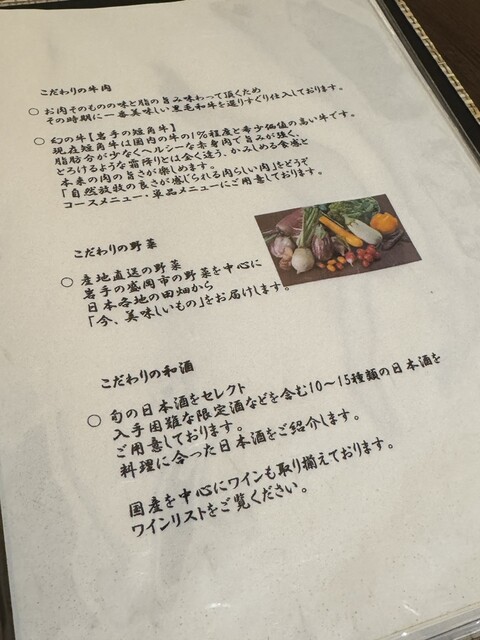 こだわりの牛肉
○ お肉そのものの味と脂の旨み味わって頂くため
その時期に一番美味しい黒毛和牛を選りすぐり仕入しております。
○ 幻の牛【岩手の短角牛】
現在短角牛は国内の牛の1%程度と希少価値の高い牛です。
脂肪分が少なくヘルシーな赤身肉で旨みが強く、
とろけるような霜降りとは全く違う、かみしめる食感と
本来の肉の旨さが楽しめます。
「自然放牧の良さが感じられる肉らしい肉」をどうぞ
コースメニュー・単品メニューにご用意しております。
こだわりの野菜
○ 産地直送の野菜
岩手の盛岡市の野菜を中心に
日本各地の田畑から
「今、美味しいもの」をお届けします。
こだわりの和酒
○ 旬の日本酒をセレクト
入手困難な限定酒などを含む10〜15種類の日本酒を
ご用意しております。
料理に合った日本酒をご紹介します。
国産を中心にワインも取り揃えております。
ワインリストをご覧ください。